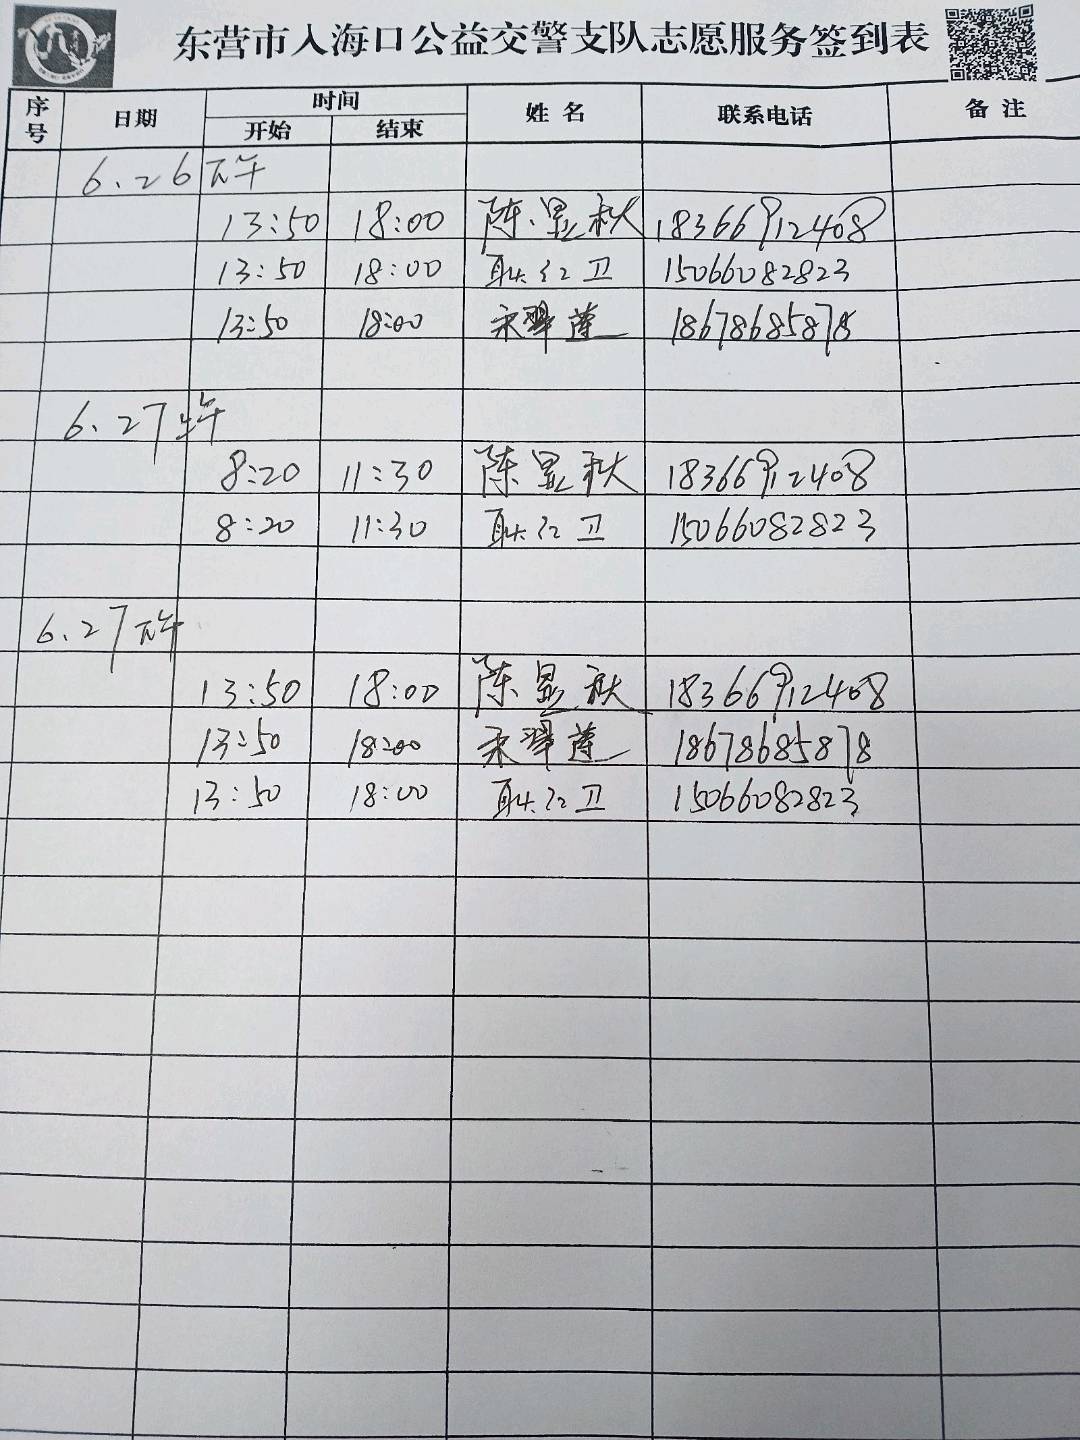 东营市入海口公益交警支队志愿服务签到表
序号 日期 时间 姓名 联系电话 备注
开始 结束
6.26 下午
13:50 18:00 陈显秋 18366912408
13:50 18:00 耿红卫 15066082823
13:50 18:00 宋翠莲 18678685878
6.27 上午
8:20 11:30 陈显秋 18366912408
8:20 11:30 耿红卫 15066082823
6.27 下午
13:50 18:00 陈显秋 18366912408
13:50 18:00 宋翠莲 18678685878
13:50 18:00 耿红卫 15066082823